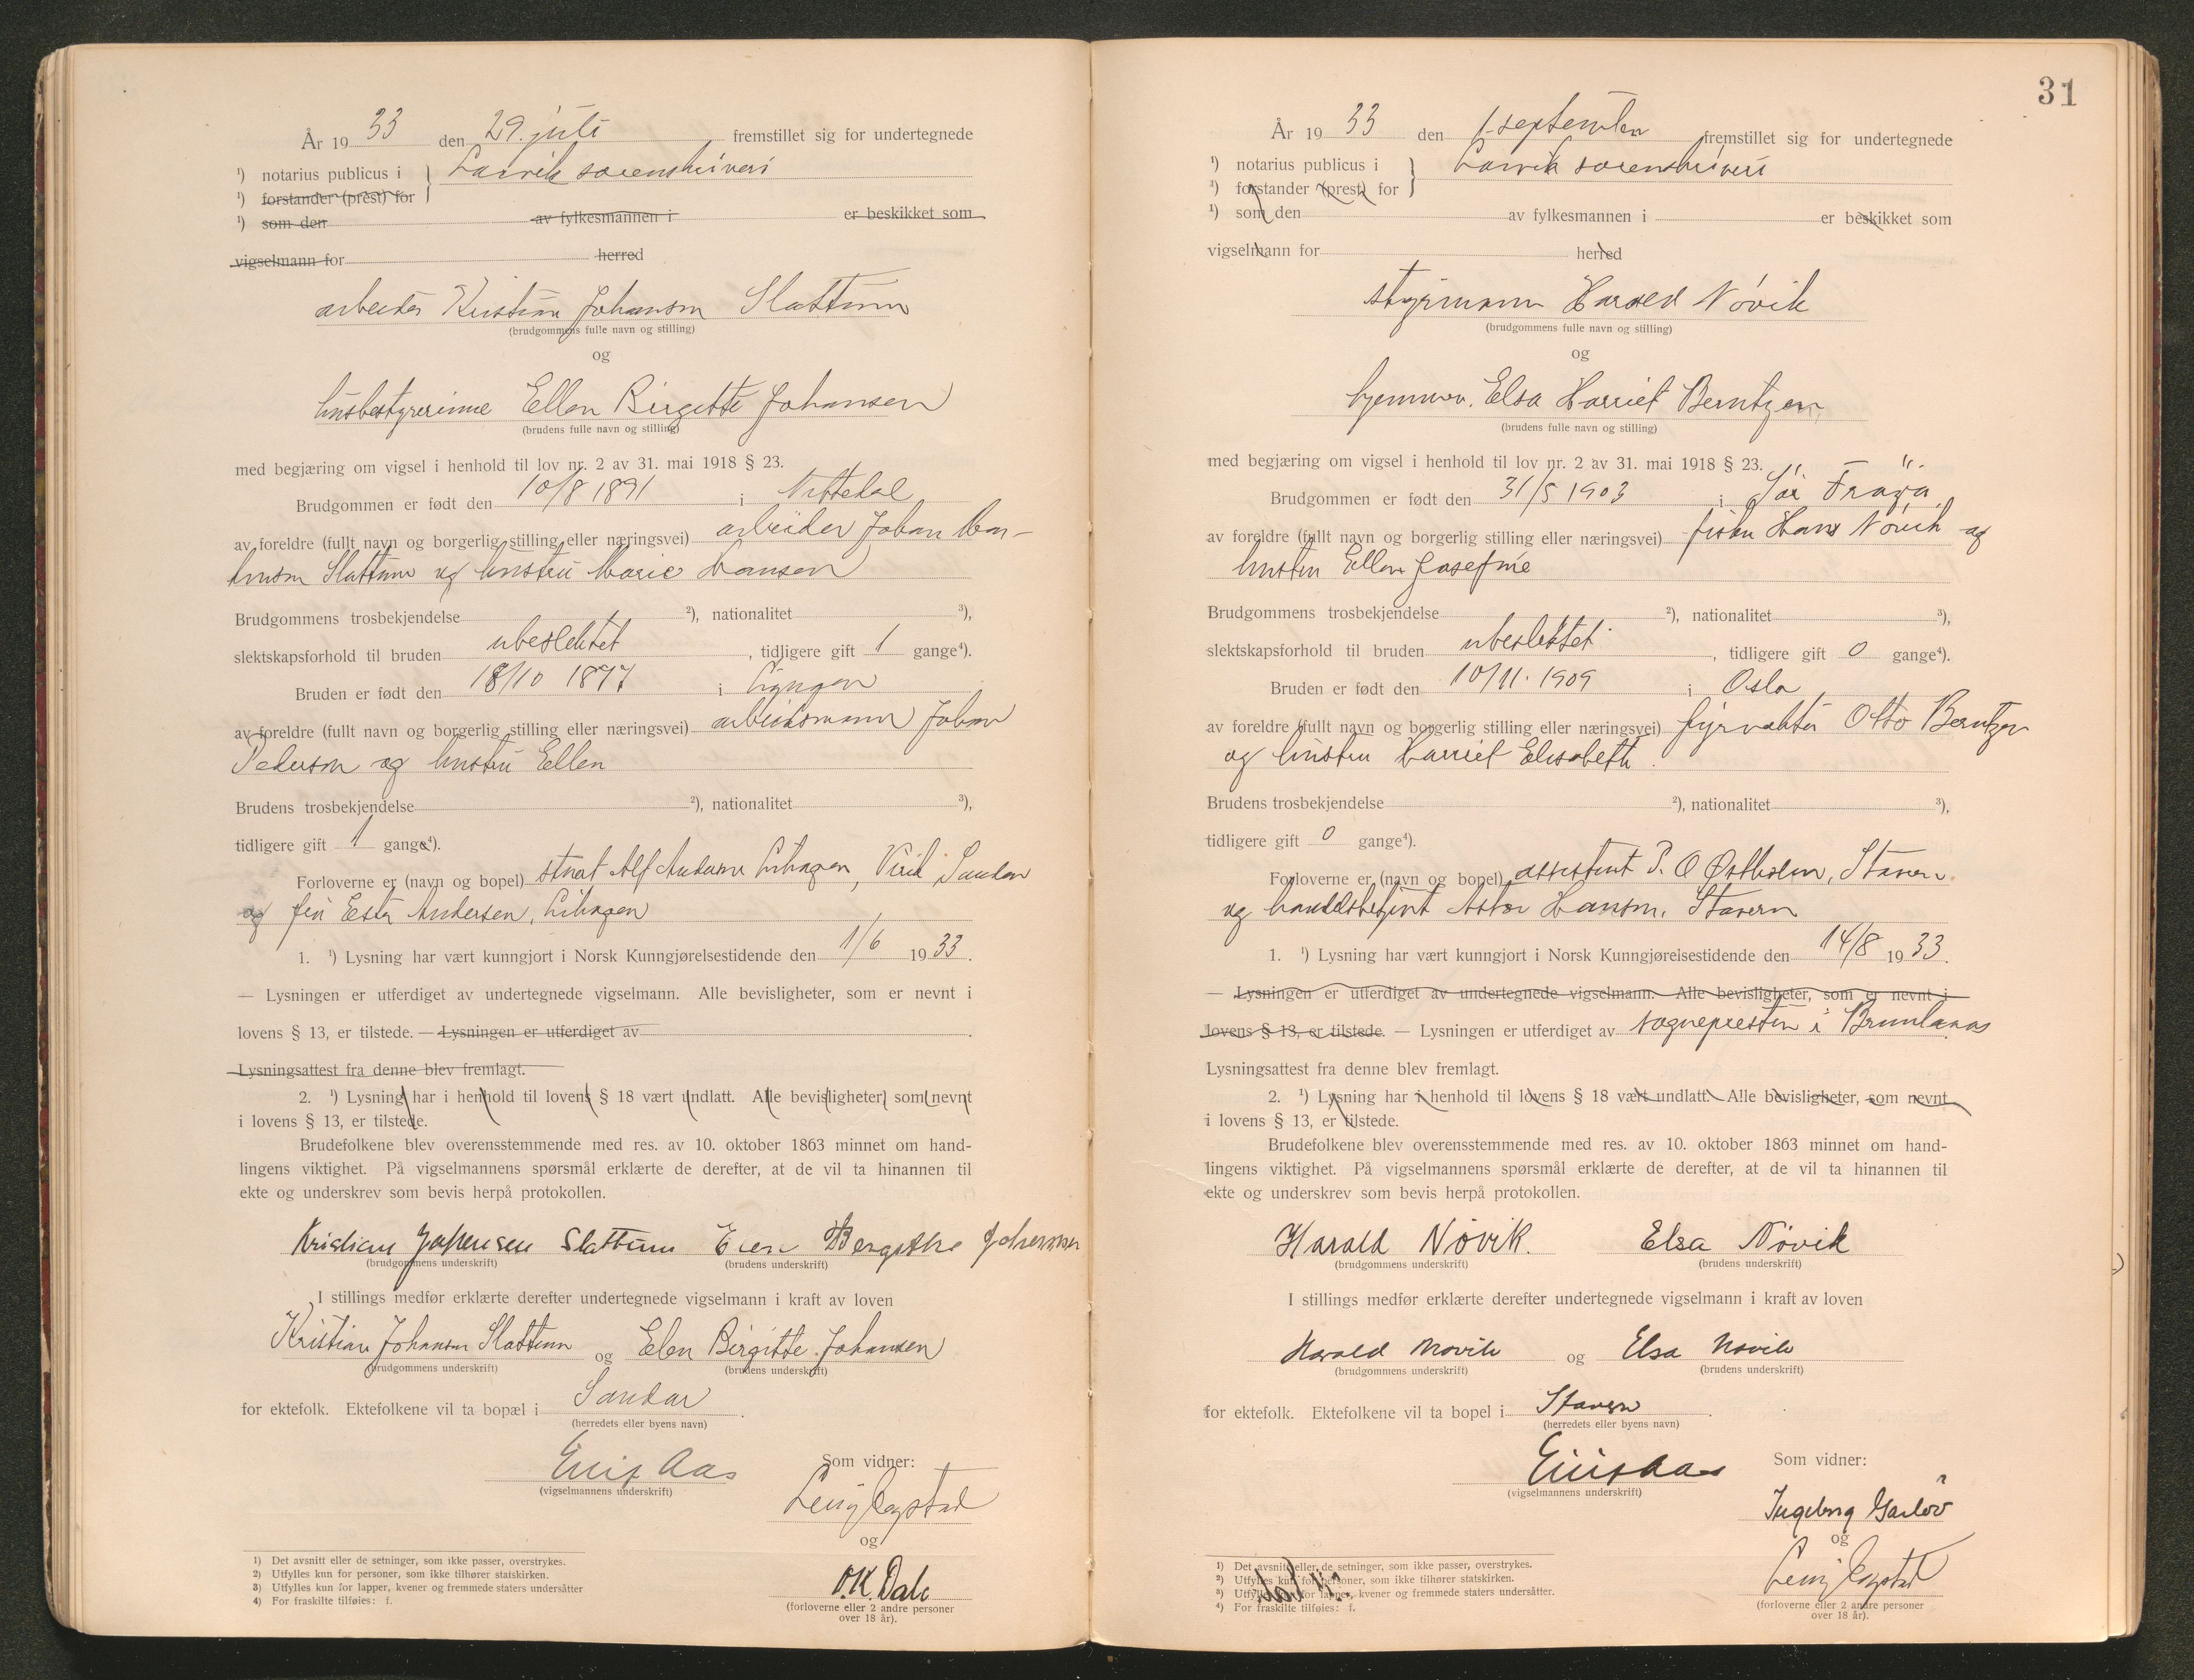 År 19 33 den 29. juli fremstillet sig for undertegnede
¹) notarius publicus i } Larvik sorenskriveri
¹) forstander (prest) for
¹) som den av fylkesmannen i er beskikket som
vigselmann for herred
arbeider Kristian Johansen Slattum
(brudgommens fulle navn og stilling)
og
husbestyrerinne Ellen Birgitte Johansen
(brudens fulle navn og stilling)
med begjæring om vigsel i henhold til lov nr. 2 av 31. mai 1918 § 23.
Brudgommen er født den 10/8 1891 i Nittedal
av foreldre (fullt navn og borgerlig stilling eller næringsvei) arbeider Johan
Slattum og hustru Marie Hansen
Brudgommens trosbekjendelse ²), nationalitet ³),
slektskapsforhold til bruden ubeslektet, tidligere gift 1 gange⁴).
Bruden er født den 18/10 1877 i Lyngen
av foreldre (fullt navn og borgerlig stilling eller næringsvei) arbeidsmann Johan
Pedersen og hustru Ellen
Brudens trosbekjendelse ²), nationalitet ³),
tidligere gift 1 gange⁴).
Forloverne er (navn og bopel) Alf Andersen
og fru Ester Andersen,
1. ¹) Lysning har vært kunngjort i Norsk Kunngjørelsestidende den 1/6 1933.
— Lysningen er utferdiget av undertegnede vigselmann. Alle bevisligheter, som er nevnt i
lovens § 13, er tilstede. — Lysningen er utferdiget av
Lysningsattest fra denne blev fremlagt.
2. ¹) Lysning har i henhold til lovens § 18 vært undlatt. Alle bevisligheter, som nevnt
i lovens § 13, er tilstede.
Brudefolkene blev overensstemmende med res. av 10. oktober 1863 minnet om hand-
lingens viktighet. På vigselmannens spørsmål erklærte de derefter, at de vil ta hinannen til
ekte og underskrev som bevis herpå protokollen.
Kristian Johansen Slattum Elen Bergitthe Johansen
(brudgommens underskrift) (brudens underskrift)
I stillings medfør erklærte derefter undertegnede vigselmann i kraft av loven
Kristian Johansen Slattum og Elen Birgitte Johansen
(brudgommens underskrift) (brudens underskrift)
for ektefolk. Ektefolkene vil ta bopæl i Sandar.
(herredets eller byens navn)
Aas Som vidner:
(vigselmannens underskrift)
og
O.K. Dale
(forloverne eller 2 andre personer
over 18 år).
1) Det avsnitt eller de setninger, som ikke passer, overstrykes.
2) Utfylles kun for personer, som ikke tilhører statskirken.
3) Utfylles kun for lapper, kvener og fremmede staters undersåtter
4) For fraskilte tilføies: f.
31
År 19 33 den 1. september fremstillet sig for undertegnede
¹) notarius publicus i } Larvik sorenskriveri
¹) forstander (prest) for
¹) som den av fylkesmannen i er beskikket som
vigselmann for herred
styrmann Harald Nóvik
(brudgommens fulle navn og stilling)
og
hjemmev. Elsa Harriet Berntzen
(brudens fulle navn og stilling)
med begjæring om vigsel i henhold til lov nr. 2 av 31. mai 1918 § 23.
Brudgommen er født den 31/5 1903 i Sør Frøya
av foreldre (fullt navn og borgerlig stilling eller næringsvei) fisker Hans Nóvik og
hustru Ellen Josefine
Brudgommens trosbekjendelse ²), nationalitet ³),
slektskapsforhold til bruden ubeslektet, tidligere gift 0 gange⁴).
Bruden er født den 10/11. 1909 i Oslo
av foreldre (fullt navn og borgerlig stilling eller næringsvei) fyrvokter Otto Berntzen
og hustru Harriet Elisabeth.
Brudens trosbekjendelse ²), nationalitet ³),
tidligere gift 0 gange⁴).
Forloverne er (navn og bopel) assistent P. O Østholm, Stavern
og handelsbetjent Hansen, Stavern
1. ¹) Lysning har vært kunngjort i Norsk Kunngjørelsestidende den 14/8 1933.
— Lysningen er utferdiget av undertegnede vigselmann. Alle bevisligheter, som er nevnt i
lovens § 13, er tilstede. — Lysningen er utferdiget av sognepresten i Brunlanes
Lysningsattest fra denne blev fremlagt.
2. ¹) Lysning har i henhold til lovens § 18 vært undlatt. Alle bevisligheter, som nevnt
i lovens § 13, er tilstede.
Brudefolkene blev overensstemmende med res. av 10. oktober 1863 minnet om hand-
lingens viktighet. På vigselmannens spørsmål erklærte de derefter, at de vil ta hinannen til
ekte og underskrev som bevis herpå protokollen.
Harald Nóvik. Elsa Nóvik
(brudgommens underskrift) (brudens underskrift)
I stillings medfør erklærte derefter undertegnede vigselmann i kraft av loven
Harald Novik og Elsa Novik
(brudgommens underskrift) (brudens underskrift)
for ektefolk. Ektefolkene vil ta bopel i Stavern.
(herredets eller byens navn)
Aas Som vidner:
(vigselmannens underskrift)
Ingeborg
og
(forloverne eller 2 andre personer
over 18 år).
1) Det avsnitt eller de setninger, som ikke passer, overstrykes.
2) Utfylles kun for personer, som ikke tilhører statskirken.
3) Utfylles kun for lapper, kvener og fremmede staters undersåtter.
4) For fraskilte tilføies: f.